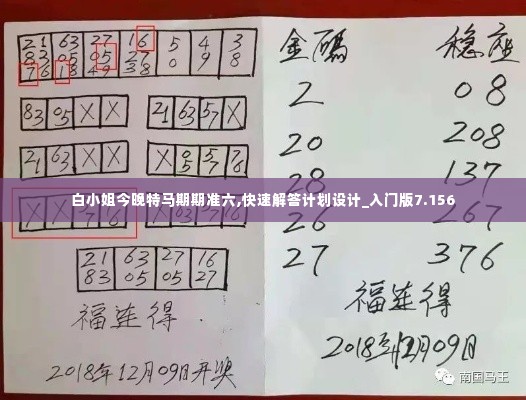 21 63 27 16 5 4 3
83 05 05 27 0 9 8
76 18 49 38
83 05 X X
21 63 57 X
21 63 X X
X 05 57 76
X X 57 16
21 63 27 16
83 05 05 27
福连得
2018年12月09日开奖
金码 稳座
2 08
20 208
28 137
白小姐今晚特马期期准六,快速解答计划设计_入门版7.156
26 267
27 376
福连得
2018年12月09日
南国马王